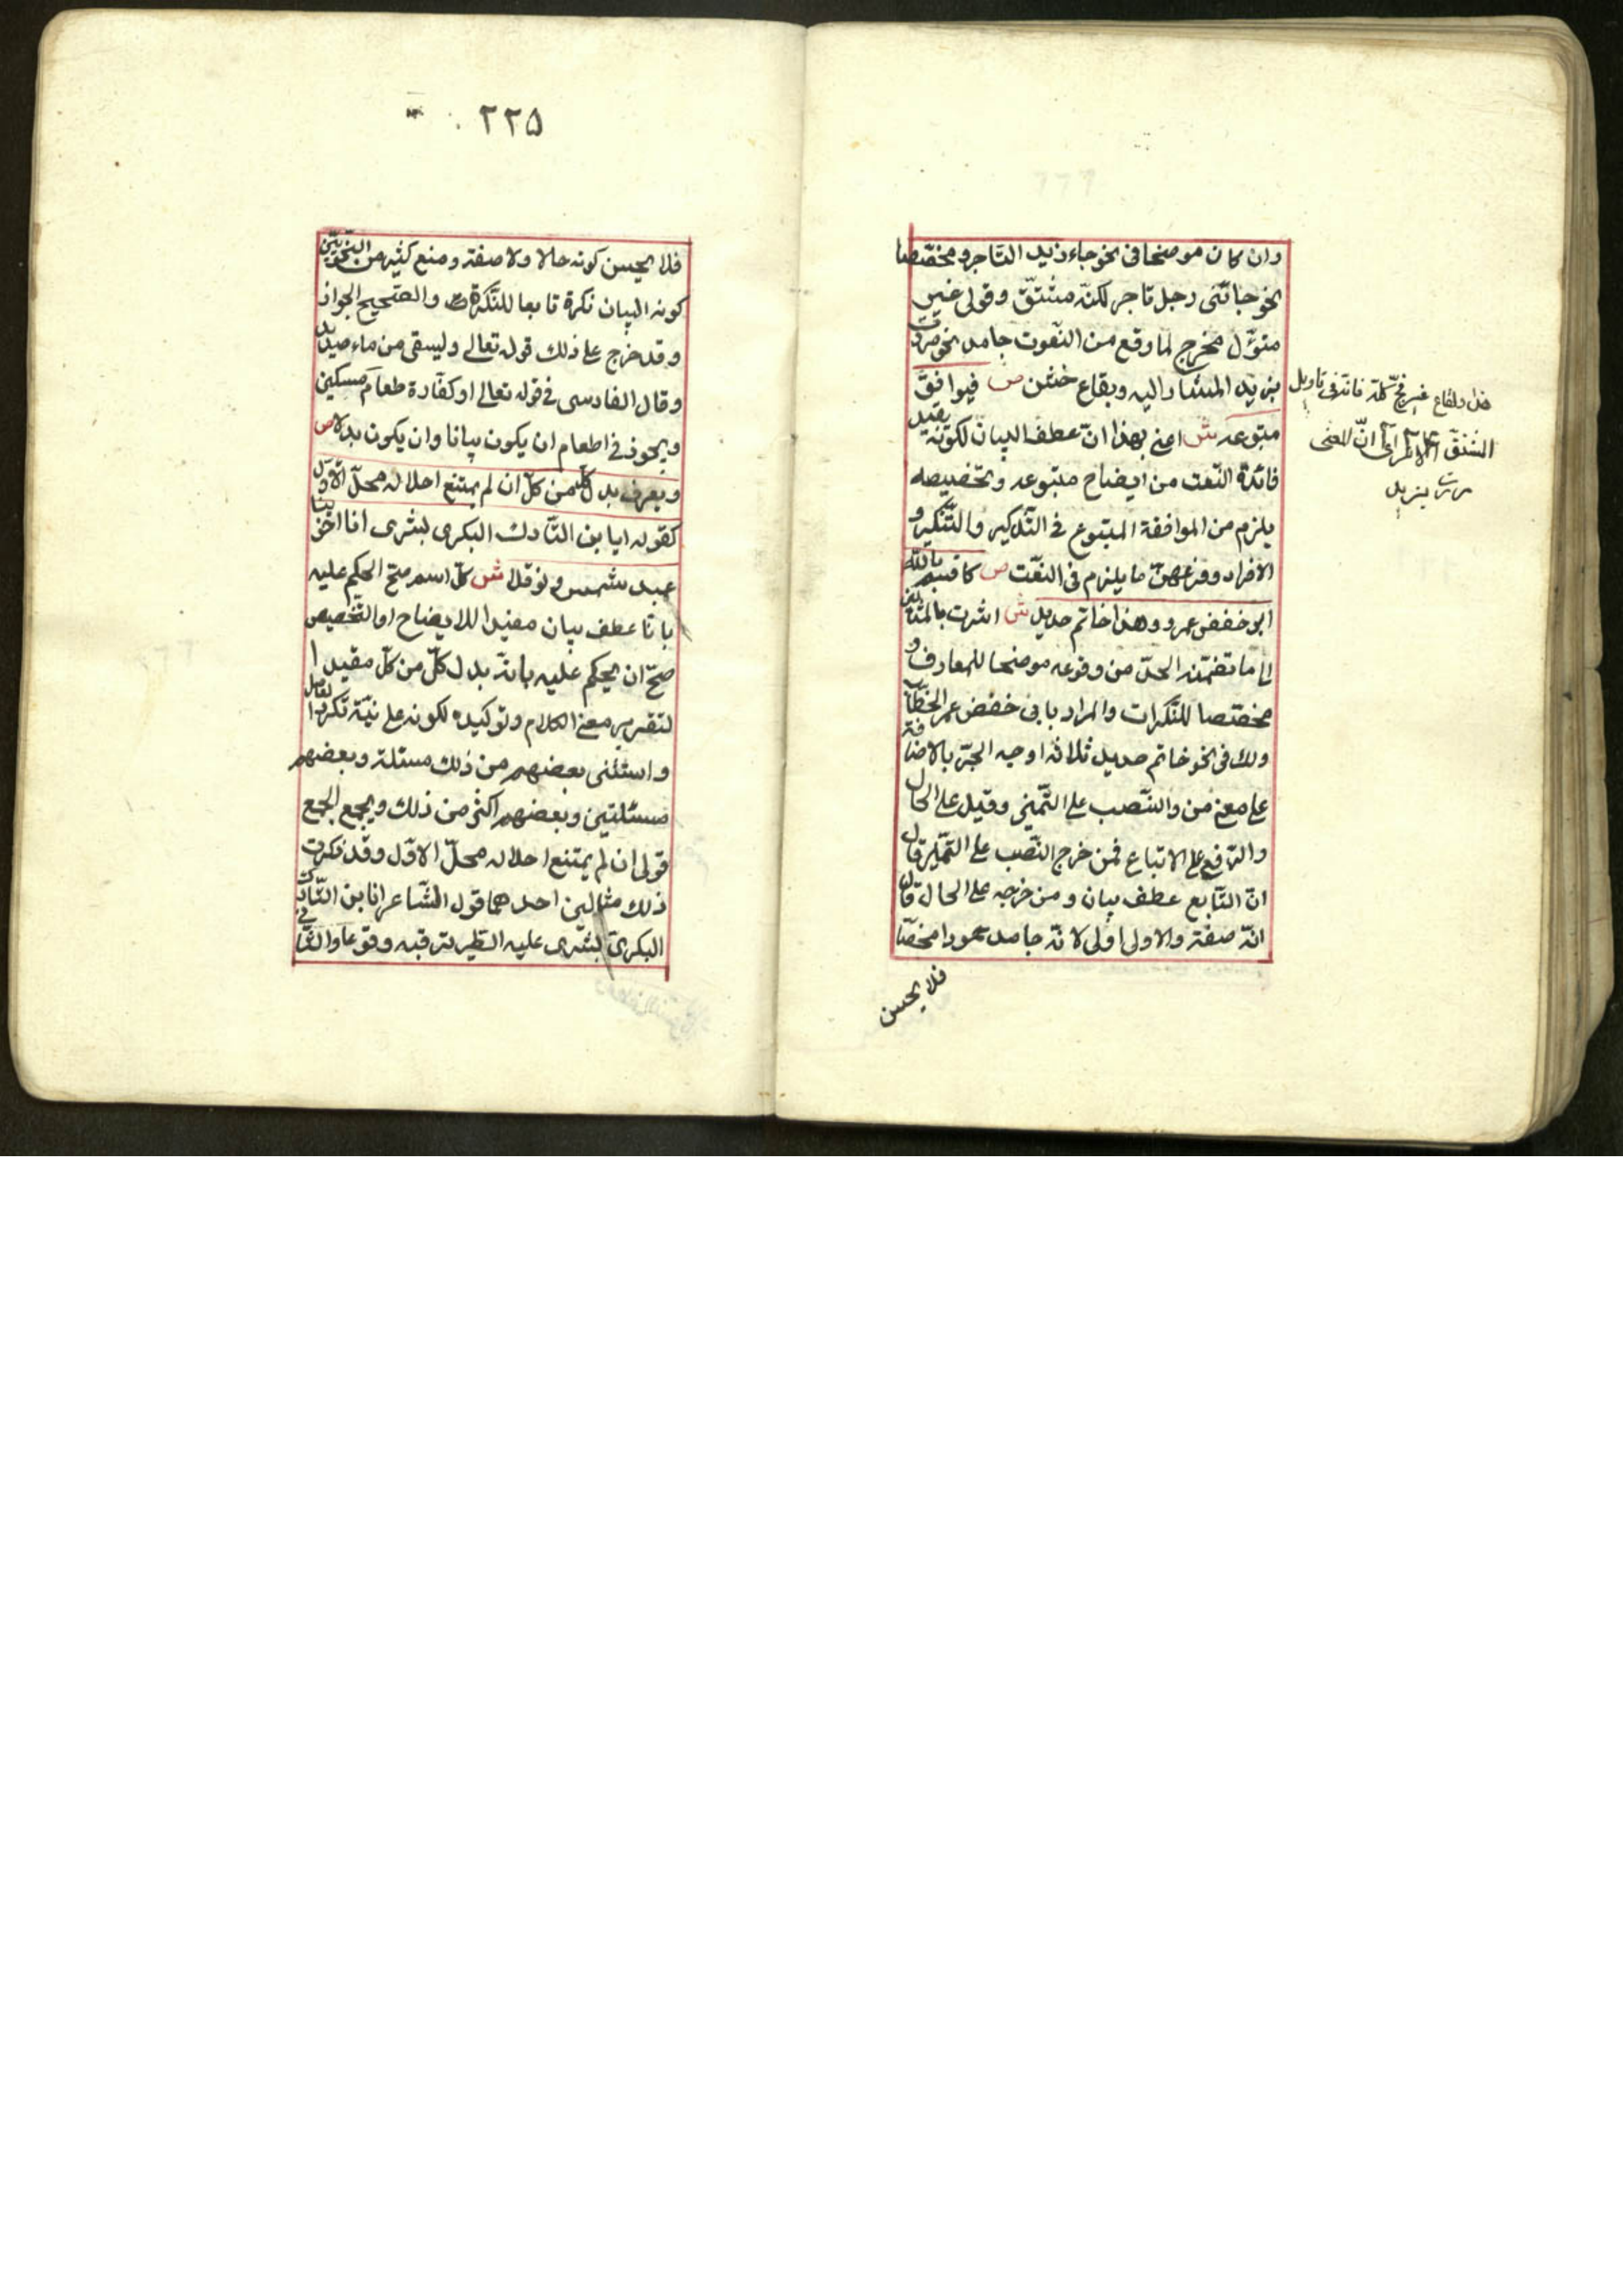 وان كان موضحا فى نحو جاء زيد التاجر ومخصّصا
نحو جائنى رجل تاجر لكنّه مشتقّ وقولى غير
مئوّل مخرج لما وقع من النّعوت جامد نحو مررت
بزيد المشار اليه وبقاع خشن ص فيوافق
متبوعه ش اعنى بهذا انّ عطف البيان لكونه يفيد
فائدة النّعت من ايضاح متبوعه وتخصيصه
يلزم من الموافقة المتبوع فى التّذكير والتّنكير و
الافراد وفروعهنّ ما يلزم فى النّعت ص كاقسم بالله
ابو حفص عمر وهذا خاتم حديد ش اشرت بالمثالين
الى ما تضمّنه الحدّ من وقوعه موضحا للمعارف و
مخصّصا للنّكرات والمراد بابى حفص عمر الخطّاب
ولك فى نحو خاتم حديد ثلاثه اوجه الجرّ بالاضافة
على معنى من والنّصب على التّميز وقيل على الحال
والرّفع على الاتباع فمن خرج النّصب على التّميز قال
انّ التّابع عطف بيان ومن خرجه على الحال قال
انّه صفة والاولى اولى لانّه جامد جمودا محضا
فلا يحسن
المشتق
انّ المعنى
مررت بزيد
٢٢٥
فلا يحسن كونه حالا ولا صفة ومنع كثير من النّحويّين
كونه البيان نكرة تابعا للنّكرة والصّحيح الجواز
وقد خرج على ذلك قوله تعالى وليسقى من ماء صديد
وقال الفارسى فى قوله تعالى او كفّارة طعام مسكين
ويجوز فى اطعام ان يكون بيانا وان يكون بدلا ص
ويعرف بدل كلّ من كلّ ان لم يمتنع احلاله محلّ الاوّل
كقوله ايا بن التّارك البكرى بشرى انا اخوينا
عبد شمس ونوفلا ش كلّ اسم صحّ الحكم عليه
بانّا عطف بيان مفيدا للايضاح او التّخصيص
صحّ ان يحكم عليه بانّه بدل كلّ من كلّ مفيدا
لتقرير معنى الكلام وتوكيده لكونه على نيّة تكرار العامل
واستثنى بعضهم من ذلك مسئلة وبعضهم
مسئلتين وبعضهم اكثر من ذلك ويجمع الجميع
قولى ان لم يمتنع احلاله محلّ الاوّل وقد ذكرت
ذلك مثالين احدهما قول الشّاعر انا بن التّارك
البكرىّ بشرى عليه الطّير ترقبه وقوعا والثّانى